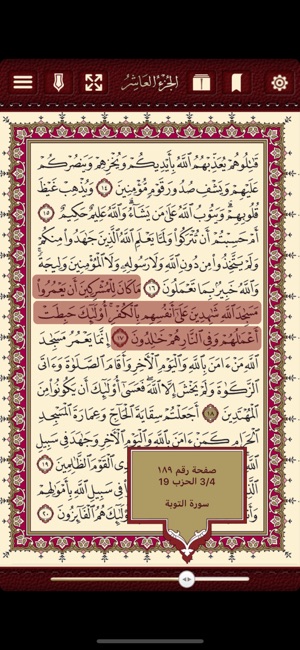 الجزء العاشر
قَٰتِلُوهُمْ يُعَذِّبْهُمُ ٱللَّهُ بِأَيْدِيكُمْ وَيُخْزِهِمْ وَيَنصُرْكُمْ
عَلَيْهِمْ وَيَشْفِ صُدُورَ قَوْمٍ مُّؤْمِنِينَ ١٤ وَيُذْهِبْ غَيْظَ
قُلُوبِهِمْ وَيَتُوبُ ٱللَّهُ عَلَىٰ مَن يَشَآءُ وَٱللَّهُ عَلِيمٌ حَكِيمٌ ١٥
أَمْ حَسِبْتُمْ أَن تُتْرَكُوا۟ وَلَمَّا يَعْلَمِ ٱللَّهُ ٱلَّذِينَ جَٰهَدُوا۟ مِنكُمْ
وَلَمْ يَتَّخِذُوا۟ مِن دُونِ ٱللَّهِ وَلَا رَسُولِهِۦ وَلَا ٱلْمُؤْمِنِينَ وَلِيجَةً
وَٱللَّهُ خَبِيرٌۢ بِمَا تَعْمَلُونَ ١٦ مَا كَانَ لِلْمُشْرِكِينَ أَن يَعْمُرُوا۟
مَسَٰجِدَ ٱللَّهِ شَٰهِدِينَ عَلَىٰٓ أَنفُسِهِم بِٱلْكُفْرِ أُو۟لَٰٓئِكَ حَبِطَتْ
أَعْمَٰلُهُمْ وَفِى ٱلنَّارِ هُمْ خَٰلِدُونَ ١٧ إِنَّمَا يَعْمُرُ مَسَٰجِدَ
ٱللَّهِ مَنْ ءَامَنَ بِٱللَّهِ وَٱلْيَوْمِ ٱلْءَاخِرِ وَأَقَامَ ٱلصَّلَوٰةَ وَءَاتَى
ٱلزَّكَوٰةَ وَلَمْ يَخْشَ إِلَّا ٱللَّهَ فَعَسَىٰٓ أُو۟لَٰٓئِكَ أَن يَكُونُوا۟ مِنَ
ٱلْمُهْتَدِينَ ١٨ أَجَعَلْتُمْ سِقَايَةَ ٱلْحَآجِّ وَعِمَارَةَ ٱلْمَسْجِدِ
ٱلْحَرَامِ كَمَنْ ءَامَنَ بِٱللَّهِ وَٱلْيَوْمِ ٱلْءَاخِرِ وَجَٰهَدَ فِى سَبِيلِ
ٱللَّهِ ى ٱلْقَوْمَ ٱلظَّٰلِمِينَ ١٩
فِى سَبِيلِ ٱللَّهِ بِأَمْوَٰلِهِمْ
هُمُ ٱلْفَآئِزُونَ ٢٠
صفحة رقم ١٨٩
3/4 الحزب 19
سورة التوبة